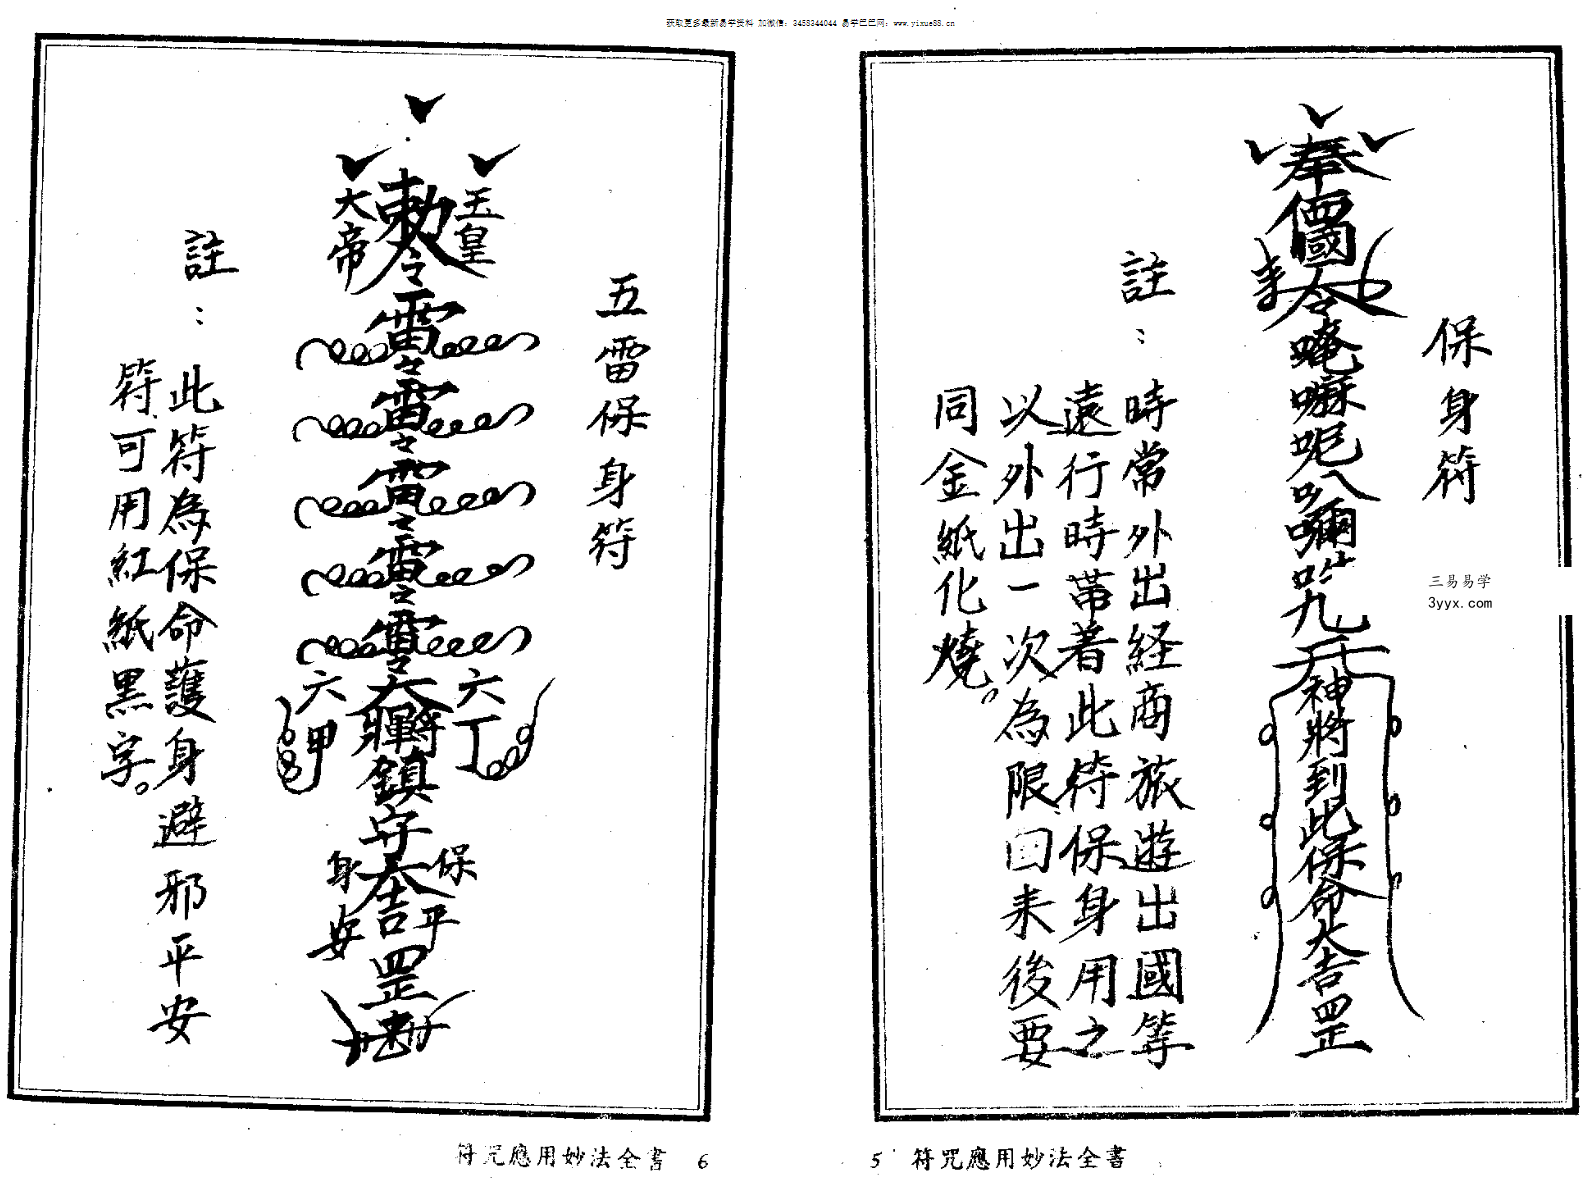 获取更多最新易学资料 加微信：3458344044 易学巴巴网：www.yixue88.cn
保身符
奉
令唵嘛呢八囉吽
神將到此保命大吉罡
註：時常外出経商旅遊出國等
遠行時帶着此符保身用之
以外出一次為限回来後要
同金紙化燒。
三易易学
3yyx.com
5 符咒應用妙法全書
五雷保身符
玉皇
勅令雷雷雷雷雷
大帝
六丁
六甲
鎮守大吉罡
保身平安
註：此符為保命護身避邪平安
符可用紅紙黑字。
符咒應用妙法全書 6